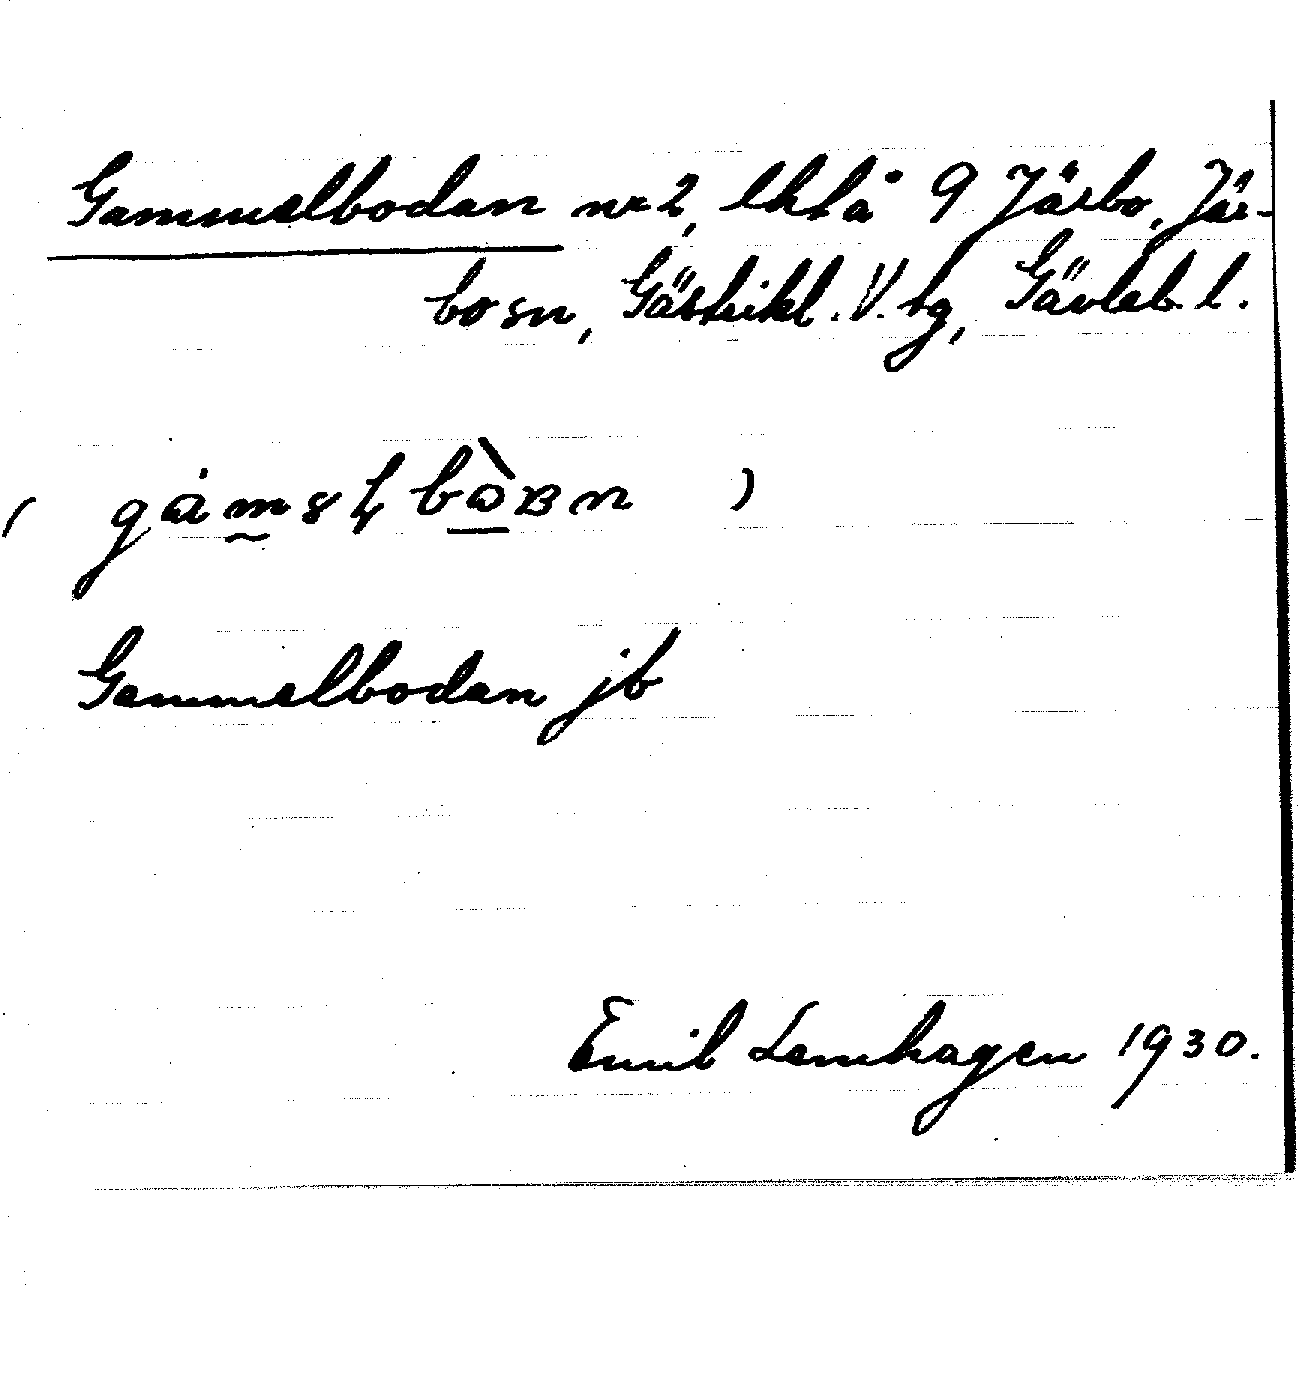 Gammelbodan nr 2, lht å 9 Järbo, Jär-
bo sn, Gästrikl. V. tg, Gävleb. l.
( gàm bòn )
Gammelbodan jb
Emil Lemhagen 1930.